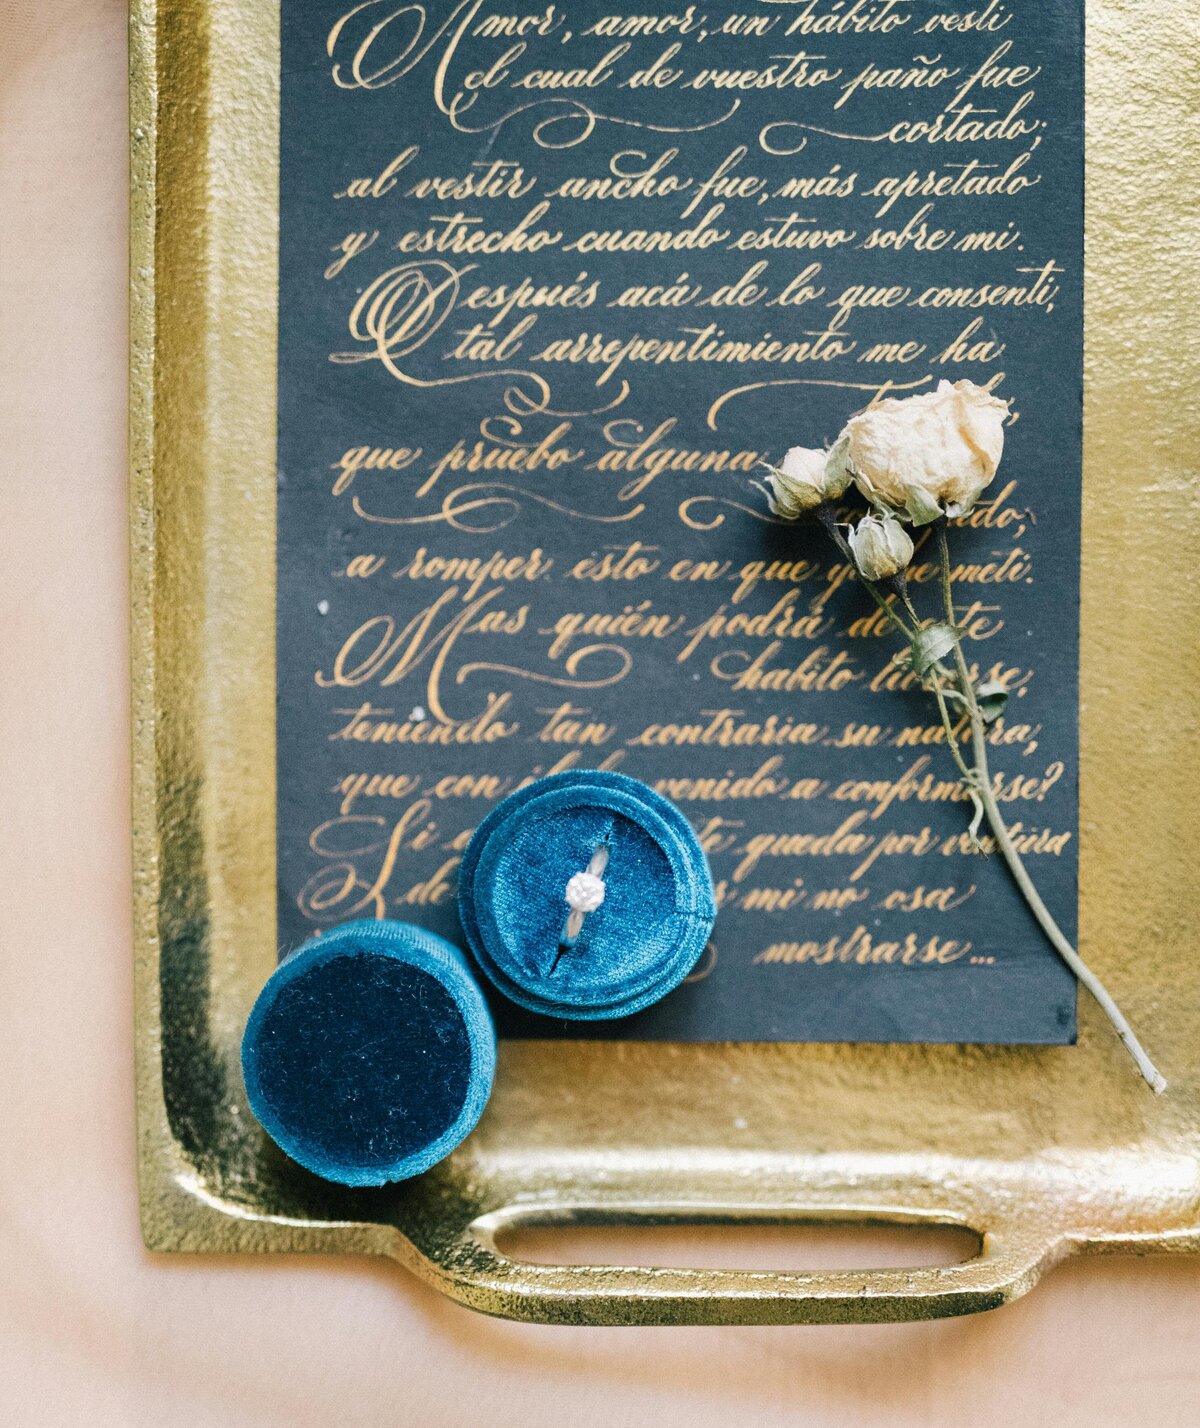 Amor, amor, un hábito vesti
el cual de vuestro paño fue
cortado;
al vestir ancho fue, más apretado
y estrecho cuando estuvo sobre mi.
Después acá de lo que consentí,
tal arrepentimiento me ha
que pruebo alguna
a romper esto en que meti.
Mas quién podrá de
habito
teniendo tan contraria su natura,
que con venido a conformarse?
Si queda por ventura
de mi no osa
mostrarse...